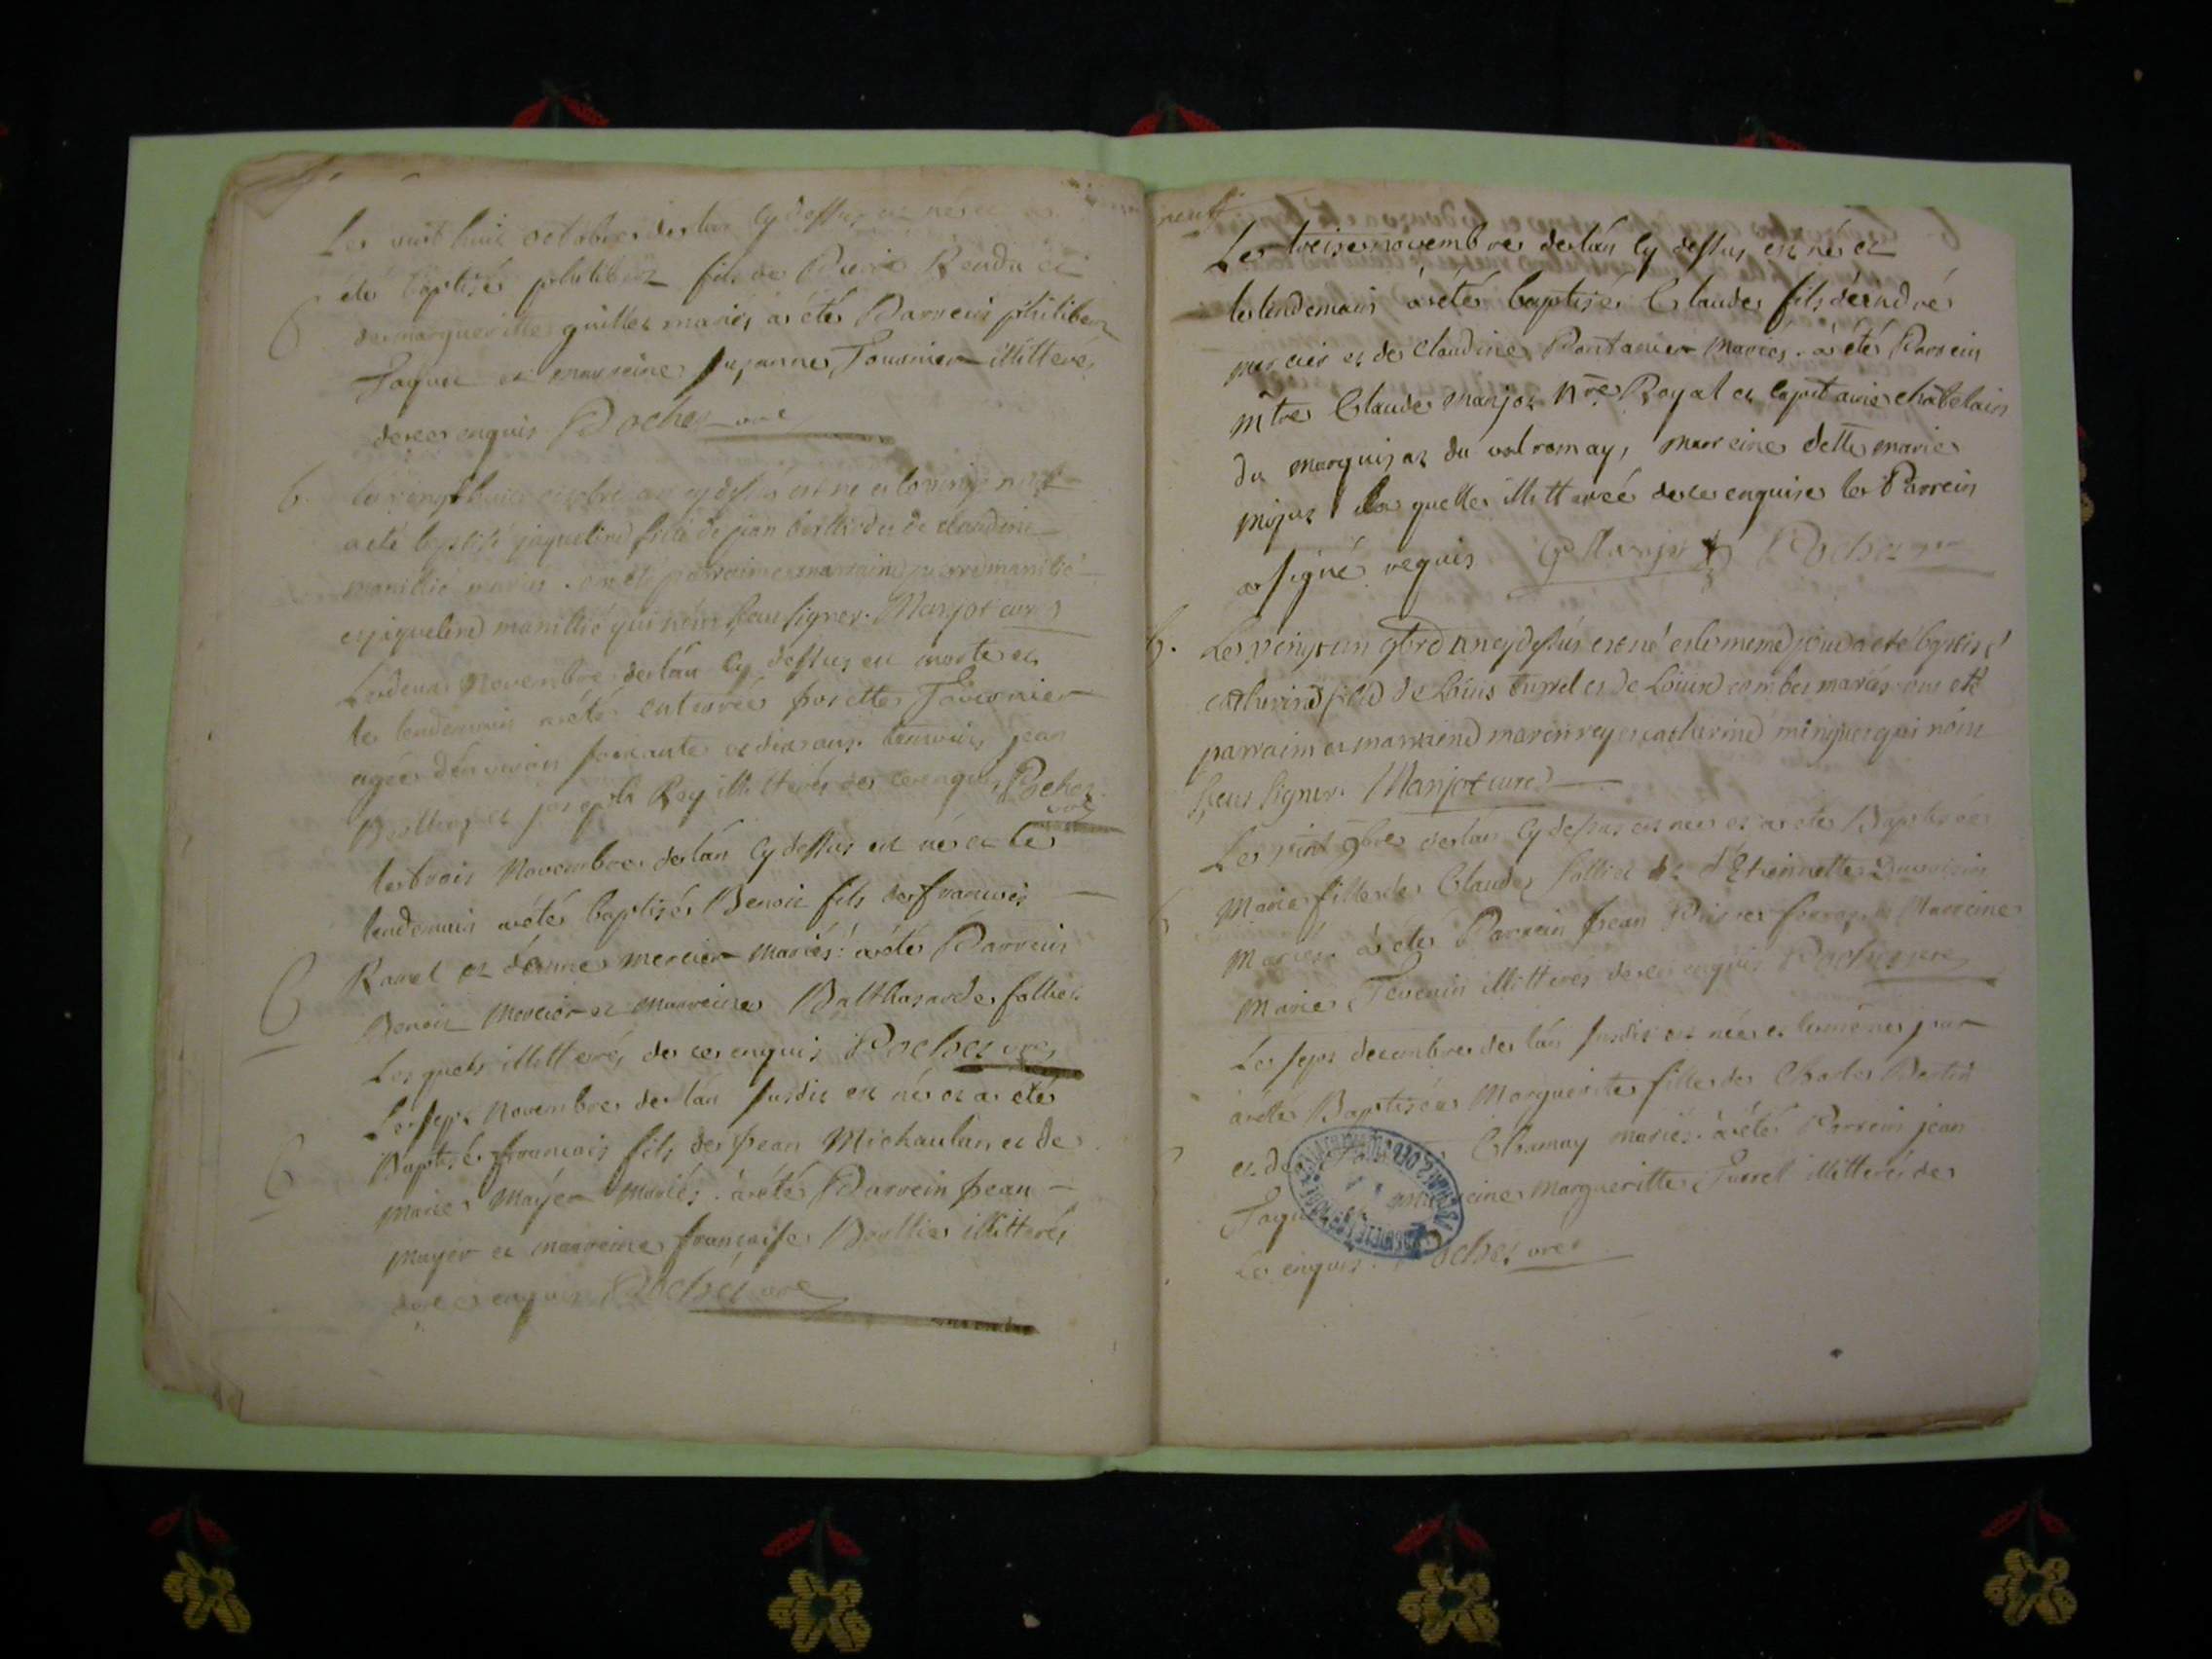 Le vint huit octobre de l'an cy dessus est né et a
été baptisé philibert fils de Pierre Rendu et
B
de margueritte guillet mariés a été Parrein philibert
Jaquet et marreine Susanne Fournier illitterés
de ce enquis Pochet vre
B. le vengt huit octobre an cy dessus est né et
a été baptisé jaqueline fille de jean berthier de claudine
manillié mariés . ont été parrain et marraine pierre manillié
et jiqueline manillié qui n'ont sceu signer . Marjot curé
Le deux Novembre de l'an cy dessus est morte et
le lendemain a été enterrée pierrette Fournier
agée d'environ soixante et dix ans. temoins jean
Berthier et joseph Rey illitterés de ce enquis Pochet
vre
le trois Novembre de l'an cy dessus est né et le
lendemain a été baptisé Benoit fils de francois
B
Ravel et d'anne mercier mariés : a été Parrein
Benoit Mercier et marreine Balthasarde follier
Lesquels illitterés de ce enquis Pochet vre
Le sept Novembre de l'an susdit est né et a été
B
Baptisé francois fils de jean Michaulan et de
marie Mayer mariés . a été Parrein jean
mayer et marreine francoise Berthier illitterés
de ce enquis Pochet vre
neuf
Le treise novembre de l'an cy dessus est né et
le lendemain a été baptisé Claude fils d'andré
mercier et de claudine Pontanier mariés . a été Parrein
mtre Claude marjot Nre Royal et capitaine chatelain
du marquisat du valromay, marreine dlle marie
mojat la quelle illitterée de ce enquise le Parrein
a signé requis C Marjot Pochet vre
B. Le vengt un 9bre an cy dessus est né et le meme jour a été baptisé
catherine fille de Loüis turrel et de Loüise combet mariés ont été
parrain et marraine marin rey et catherine minguet qui n'ont
sceu signer. Marjot curé
Le vint 9bre de l'an cy dessus est née et a été Baptisée
Marie fille de Claude follier et d'Etiennette
B
mariés. a été Parrein jean Pierre Marreine
Marie Tevenin illitterés de ce enquis Pochet vre
Le sept decembre de l'an susdit est née et le même jour
a été Baptisée Margueritte fille de Charles Bertin
et de Chamay mariés . a été Parrein jean
Jaquet marreine Margueritte Turrel illitterés de
ce enquis . Pochet vre